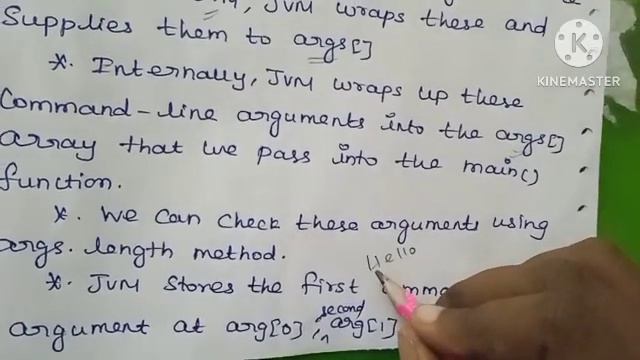 JVM wraps these and
Supplies them to args[]
*. Internally, JVM wraps up these
Command-line arguments into the args[]
array that we pass into the main()
function.
*. We can check these arguments using
args.length method.
Hello
*. JVM Stores the first
second
argument at arg[0], arg[1]
KINEMASTER